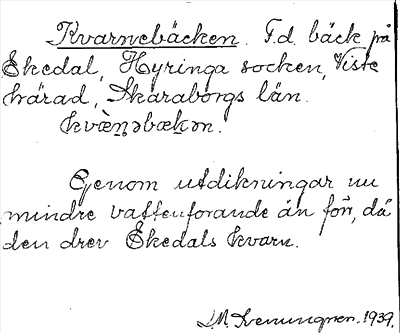 Kvarnebäcken. F.d. bäck på
Ekedal, Hyringa socken, Viste
härad, Skaraborgs län.
kvæ̀ṉəbæḵən.
Genom utdikningar nu
mindre vattenförande än förr, då
den drev Ekedals kvarn.
1939.